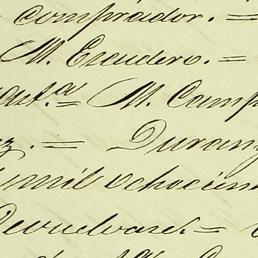 comprador. =
M. Escudero. =
aut.ª = M. Camp
z. = Durang
mil ochocien
Devuelvase =